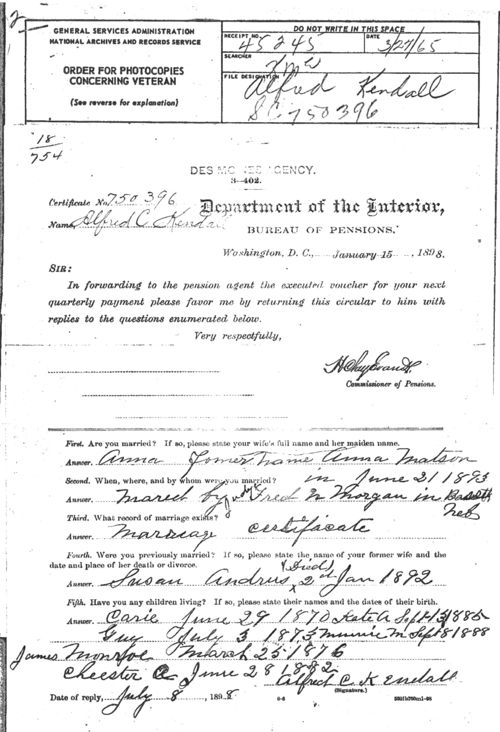 2
GENERAL SERVICES ADMINISTRATION
NATIONAL ARCHIVES AND RECORDS SERVICE
ORDER FOR PHOTOCOPIES
CONCERNING VETERAN
(See reverse for explanation)
DO NOT WRITE IN THIS SPACE
RECEIPT NO.
45245
DATE
3/27/65
SEARCHER
FILE DESIGNATION
Alfred Kendall
SC 750396
18
754
DES MOINES AGENCY.
3-402.
Certificate No. 750396
Name, Alfred C. Kendall
Department of the Interior,
BUREAU OF PENSIONS,
Washington, D. C., January 15, 1898.
SIR:
In forwarding to the pension agent the executed voucher for your next
quarterly payment please favor me by returning this circular to him with
replies to the questions enumerated below.
Very respectfully,
H Clay Evans
Commissioner of Pensions.
First. Are you married? If so, please state your wife's full name and her maiden name.
Answer. Anna Fomer name Anna Matson
Second. When, where, and by whom were you married? in June 21 1893
Answer. Mared by Judge Fred N Morgan in Bassett
Neb
Third. What record of marriage exists?
Answer. Marriag certifacate
Fourth. Were you previously married? If so, please state the name of your former wife and the
date and place of her death or divorce.
Answer. Susan Andrus Died 2nd Jan 1892
Fifth. Have you any children living? If so, please state their names and the dates of their birth.
Answer. Carie June 29 1870 Kate A Sept 13 1885
Guy July 3 1873 Minnie M Sept 8 1888
James Monroe March 25 1876
Cheester A June 28 1882
Alfred C Kendall
(Signature.)
Date of reply, July 8, 1898